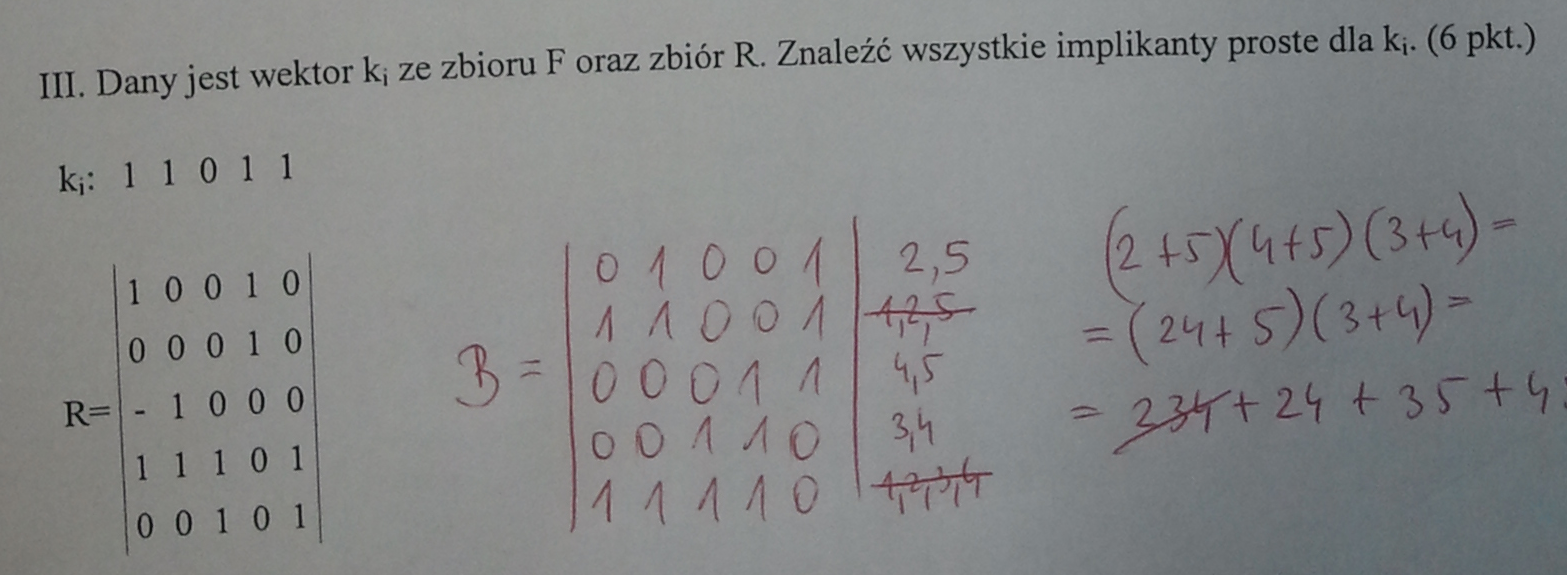 III. Dany jest wektor kᵢ ze zbioru F oraz zbiór R. Znaleźć wszystkie implikanty proste dla kᵢ. (6 pkt.)
kᵢ: 1 1 0 1 1
R=
1 0 0 1 0
0 0 0 1 0
- 1 0 0 0
1 1 1 0 1
0 0 1 0 1
B =
0 1 0 0 1 | 2,5
1 1 0 0 1 | 1,2,5
0 0 0 1 1 | 4,5
0 0 1 1 0 | 3,4
1 1 1 1 0 | 1,2,3,4
(2+5)(4+5)(3+4)=
=(24+5)(3+4)=
= 234+24+35+4